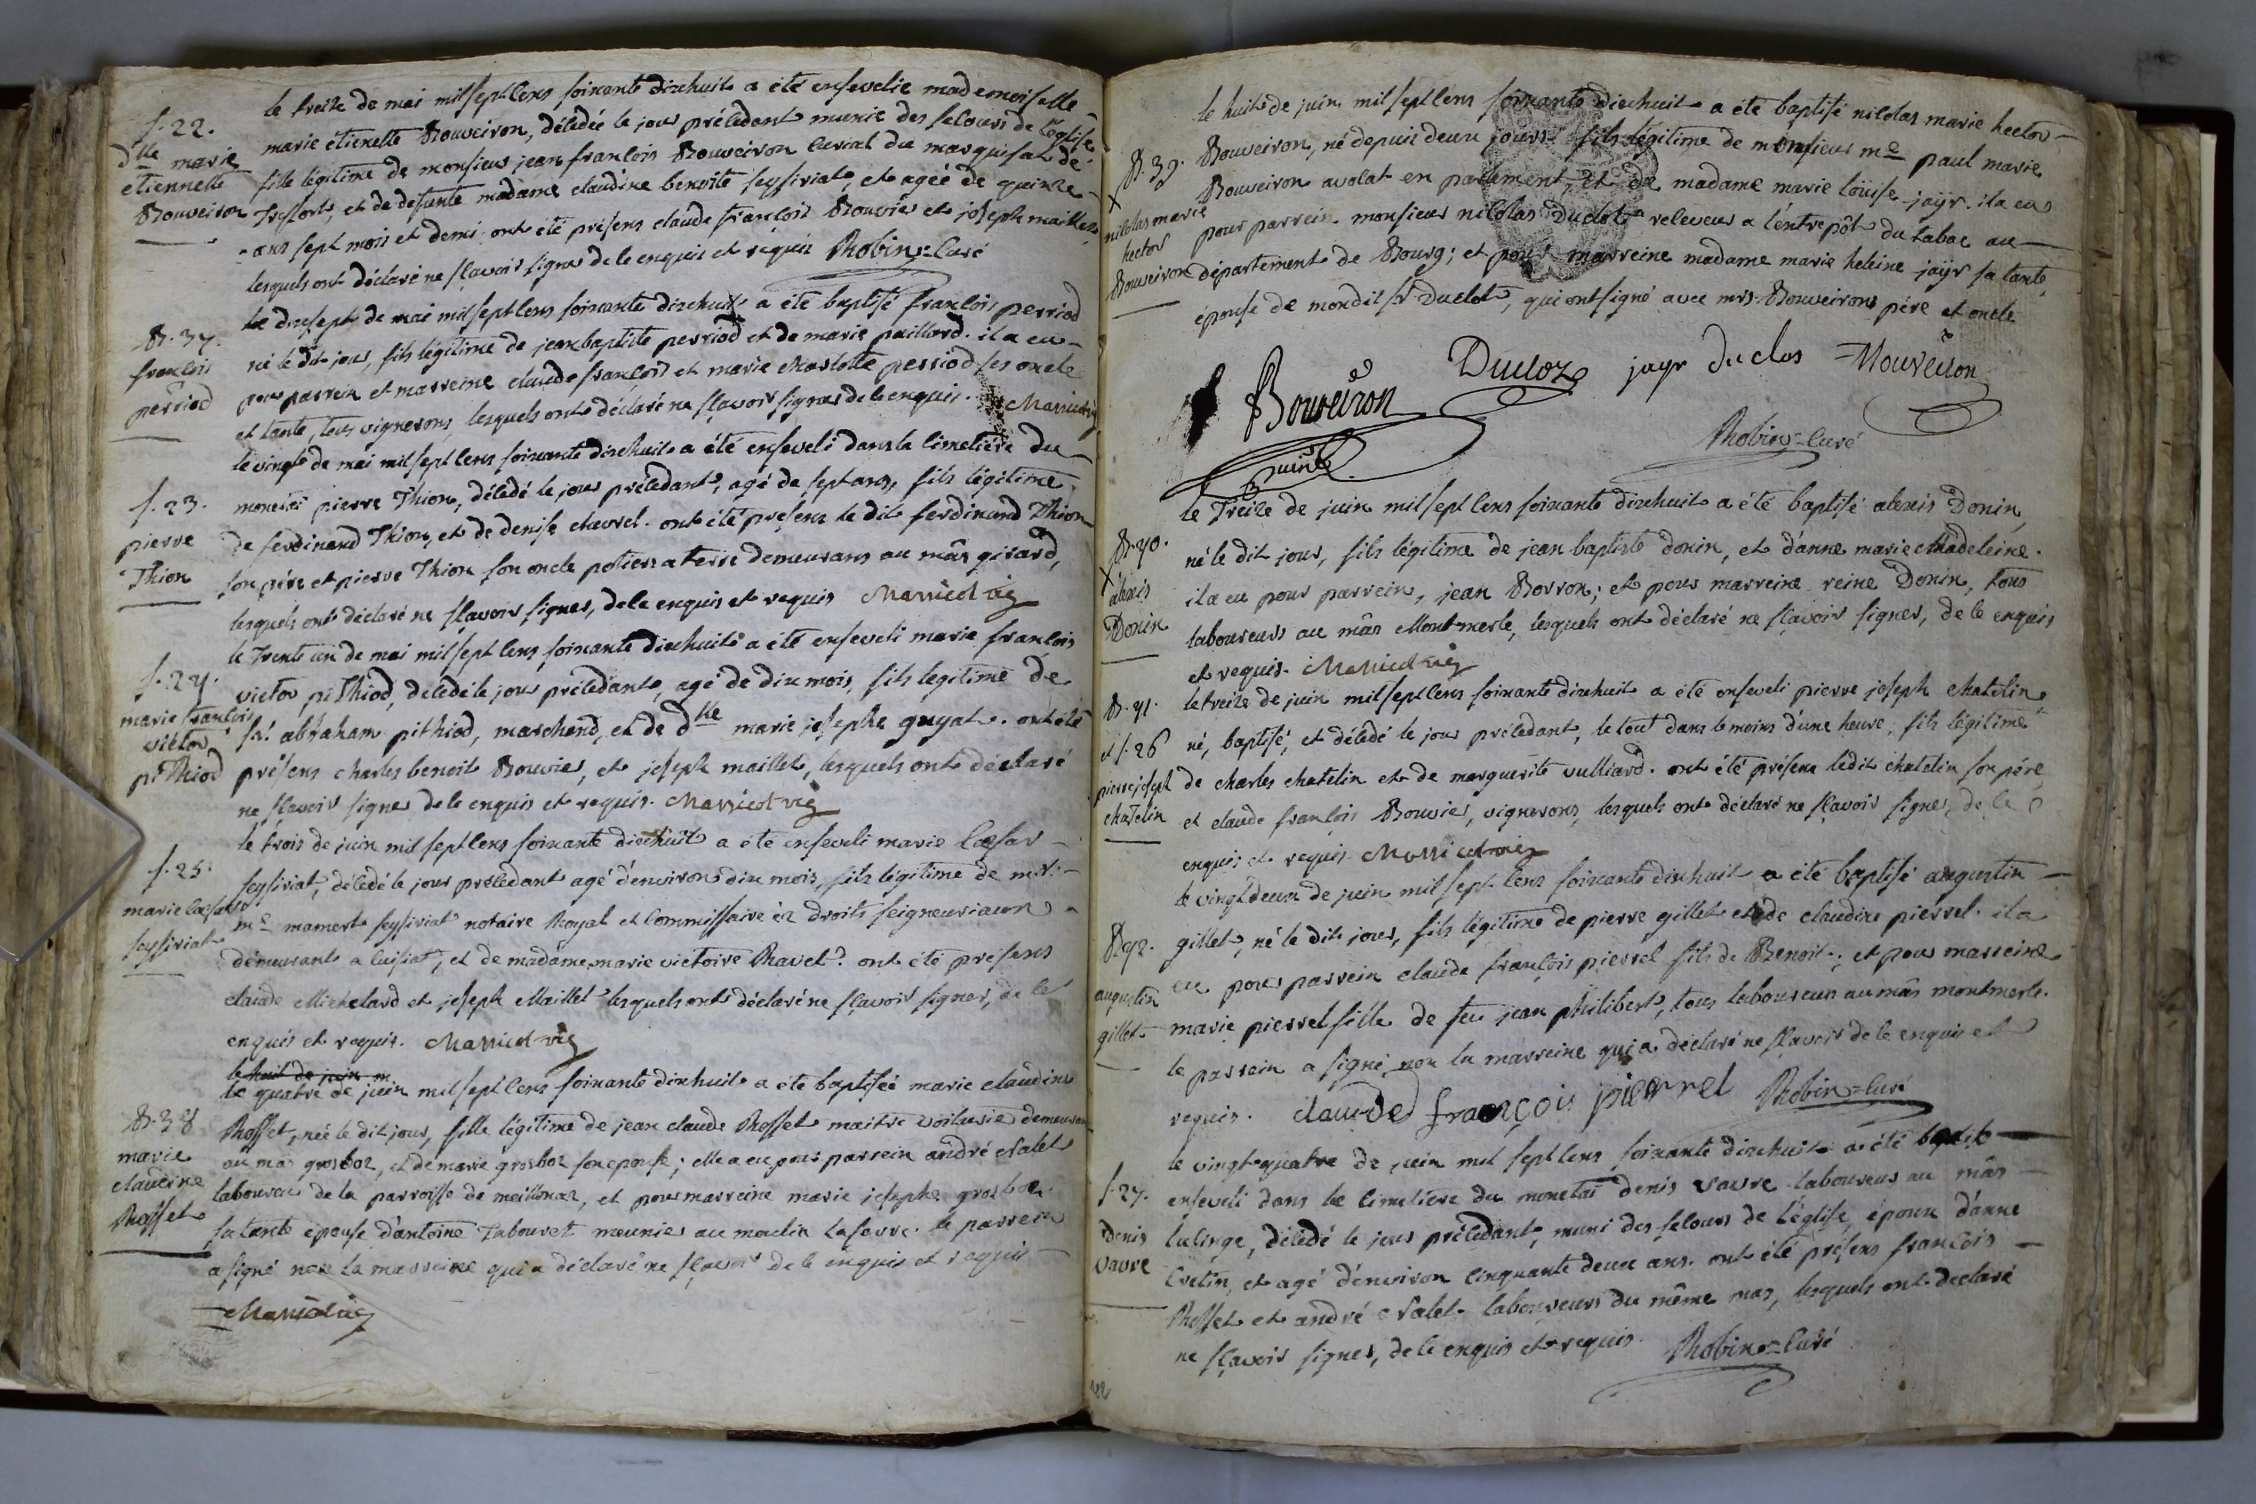 S. 22.
dlle marie
etiennette
Bouveiron
le treize de mai mil sept cens soixante dixhuit a été ensevelie mademoiselle
marie étienette Bouveiron, décédée le jour précédant munie des secours de l'église
fille légitime de monsieur jean françois Bouveiron curial du marquisat de
treffort, et de defunte madame claudine benoite seyssiriat, et agée de quinze
ans sept mois et demi. ont été présens claude françois Bouvier et joseph maillet,
lesquels ont déclaré ne sçavoir signer de ce enquis et requis Robin = curé
B. 37.
françois
perriod
le dix sept de mai mil sept cens soixante dixhuit a été baptisé françois perriod
né le dit jour, fils légitime de jean baptiste perriod et de marie paillard. il a eu
pour parrein et marreine claude françois et marie charlotte perriod ses oncle
et tante, tous vignerons, lesquels ont déclaré ne sçavoir signer de ce enquis. Marricod vic
S. 23.
pierre
Thion
le vingt de mai mil sept cens soixante dixhuit a été enseveli dans le cimetière du
monetai pierre Thion, décédé le jour précédant, agé de sept ans, fils légitime
de ferdinand Thion, et de denise chevrel. ont été présens le dit ferdinand Thion
son père et pierre Thion son oncle potiers a terre demeurans au mâs girard,
lesquels ont déclaré ne sçavoir signer, de ce enquis et requis Marricod vic
S. 24.
marie françois
victor
pithiod
le trente un de mai mil sept cens soixante dixhuit a été enseveli marie françois
victor pithiod, décédé le jour précédant, agé de dix mois, fils légitime de
sr. abraham pithiod, marchand, et de dlle marie josephe guyat. ont été
présens charles benoit Bouvier, et joseph maillet, lesquels ont déclaré
ne sçavoir signer de ce enquis et requis. Marricod vic
S. 25.
marie cæsar
seyssiriat
le trois de juin mil sept cens soixante dixhuit a été enseveli marie cæsar
seyssiriat, décédé le jour précédant agé d'environ dix mois, fils légitime de
me mamert seyssiriat notaire Royal et commissaire ès droits seigneuriaux
demeurant a cuisiat, et de madame marie victoire Ravet. ont été présens
claude Michelard et joseph Maillet lesquels ont déclaré ne sçavoir signer, de ce
enquis et requis. Marricod vic
le huit de juin m
B. 38
marie
claudine
Rosset
le quatre de juin mil sept cens soixante dixhuit a été baptisée marie claudine
Rosset, née le dit jour, fille légitime de jean claude Rosset maitre voiturier demeurant
au mas grosboz, et de marie grosboz son epouse; elle a eu pour parrein andré Valet
laboureur de la parroisse de meillonaz, et pour marreine marie josephe grosboz
sa tante épouse d'antoine Tabouret meunier au moulin . le parrein
a signé non la marreine qui a déclaré ne sçavoir de ce enquis et requis
Marricod vic
B. 39.
nicolas marie
hector
Bouveiron
le huit de juin mil sept cens soixante dixhuit a été baptisé nicolas marie hector
Bouveiron, né depuis deux jours fils légitime de monsieur me paul marie
Bouveiron avocat en parlement, et de madame marie loüise jayr. il a eu
pour parrein monsieur nicolas Duclot receveur a l'entrepôt du tabac au
département de Bourg; et pour marreine madame marie heleine jaÿr sa tante,
épouse de mondit sr. Duclot, qui ont signé avec mrs. Bouveirons père et oncle
Bouveiron Ducloz jayr duclos Bouveiron
Robin = curé
B. 40.
alexis
Donin
le treize de juin mil sept cens soixante dixhuit a été baptisé alexis Donin,
né le dit jour, fils légitime de jean baptiste donin, et d'anne marie Madeleine.
il a eu pour parrein, jean Borron; et pour marreine reine Donin, tous
laboureurs au mâs Montmerle, lesquels ont déclaré ne sçavoir signer, de ce enquis
et requis. Marricod vic
B. 41.
et S. 26
pierre joseph
chatelin
le treize de juin mil sept cens soixante dixhuit a été enseveli pierre joseph chatelin
né, baptisé, et décédé le jour précédant, le tout dans le moins d'une heure, fils légitime
de charles chatelin et de marguerite vulliard. ont été présens ledit chatelin son père,
et claude françois Bouvier, vignerons, lesquels ont déclaré ne sçavoir signer, de ce
enquis et requis Marricod vic
B. 42.
augustin
gillet
le vingt deux de juin mil sept cens soixante dixhuit a été baptisé augustin
gillet, né le dit jour, fils légitime de pierre gillet et de claudine pierrel. il a
eu pour parrein claude françois pierrel fils de Benoit; et pour marreine
marie pierrel fille de feu jean philibert, tous laboureurs au mâs montmerle.
le parrein a signé, non la marreine qui a déclaré ne sçavoir de ce enquis et
requis. claude françois pierrel Robin = curé
S. 27.
denis
vavre
le vingt quatre de juin mil sept cens soixante dixhuit a été
enseveli dans le cimetière du monetai denis vavre laboureur au mâs
lucinge, décédé le jour précédant, muni des secours de l'église, époux d'anne
cretin, et agé d'environ cinquante deux ans. ont été présens françois
Rosset et andré Valet laboureurs du même mas, lesquels ont declaré
ne sçavoir signer, de ce enquis et requis. Robin = curé